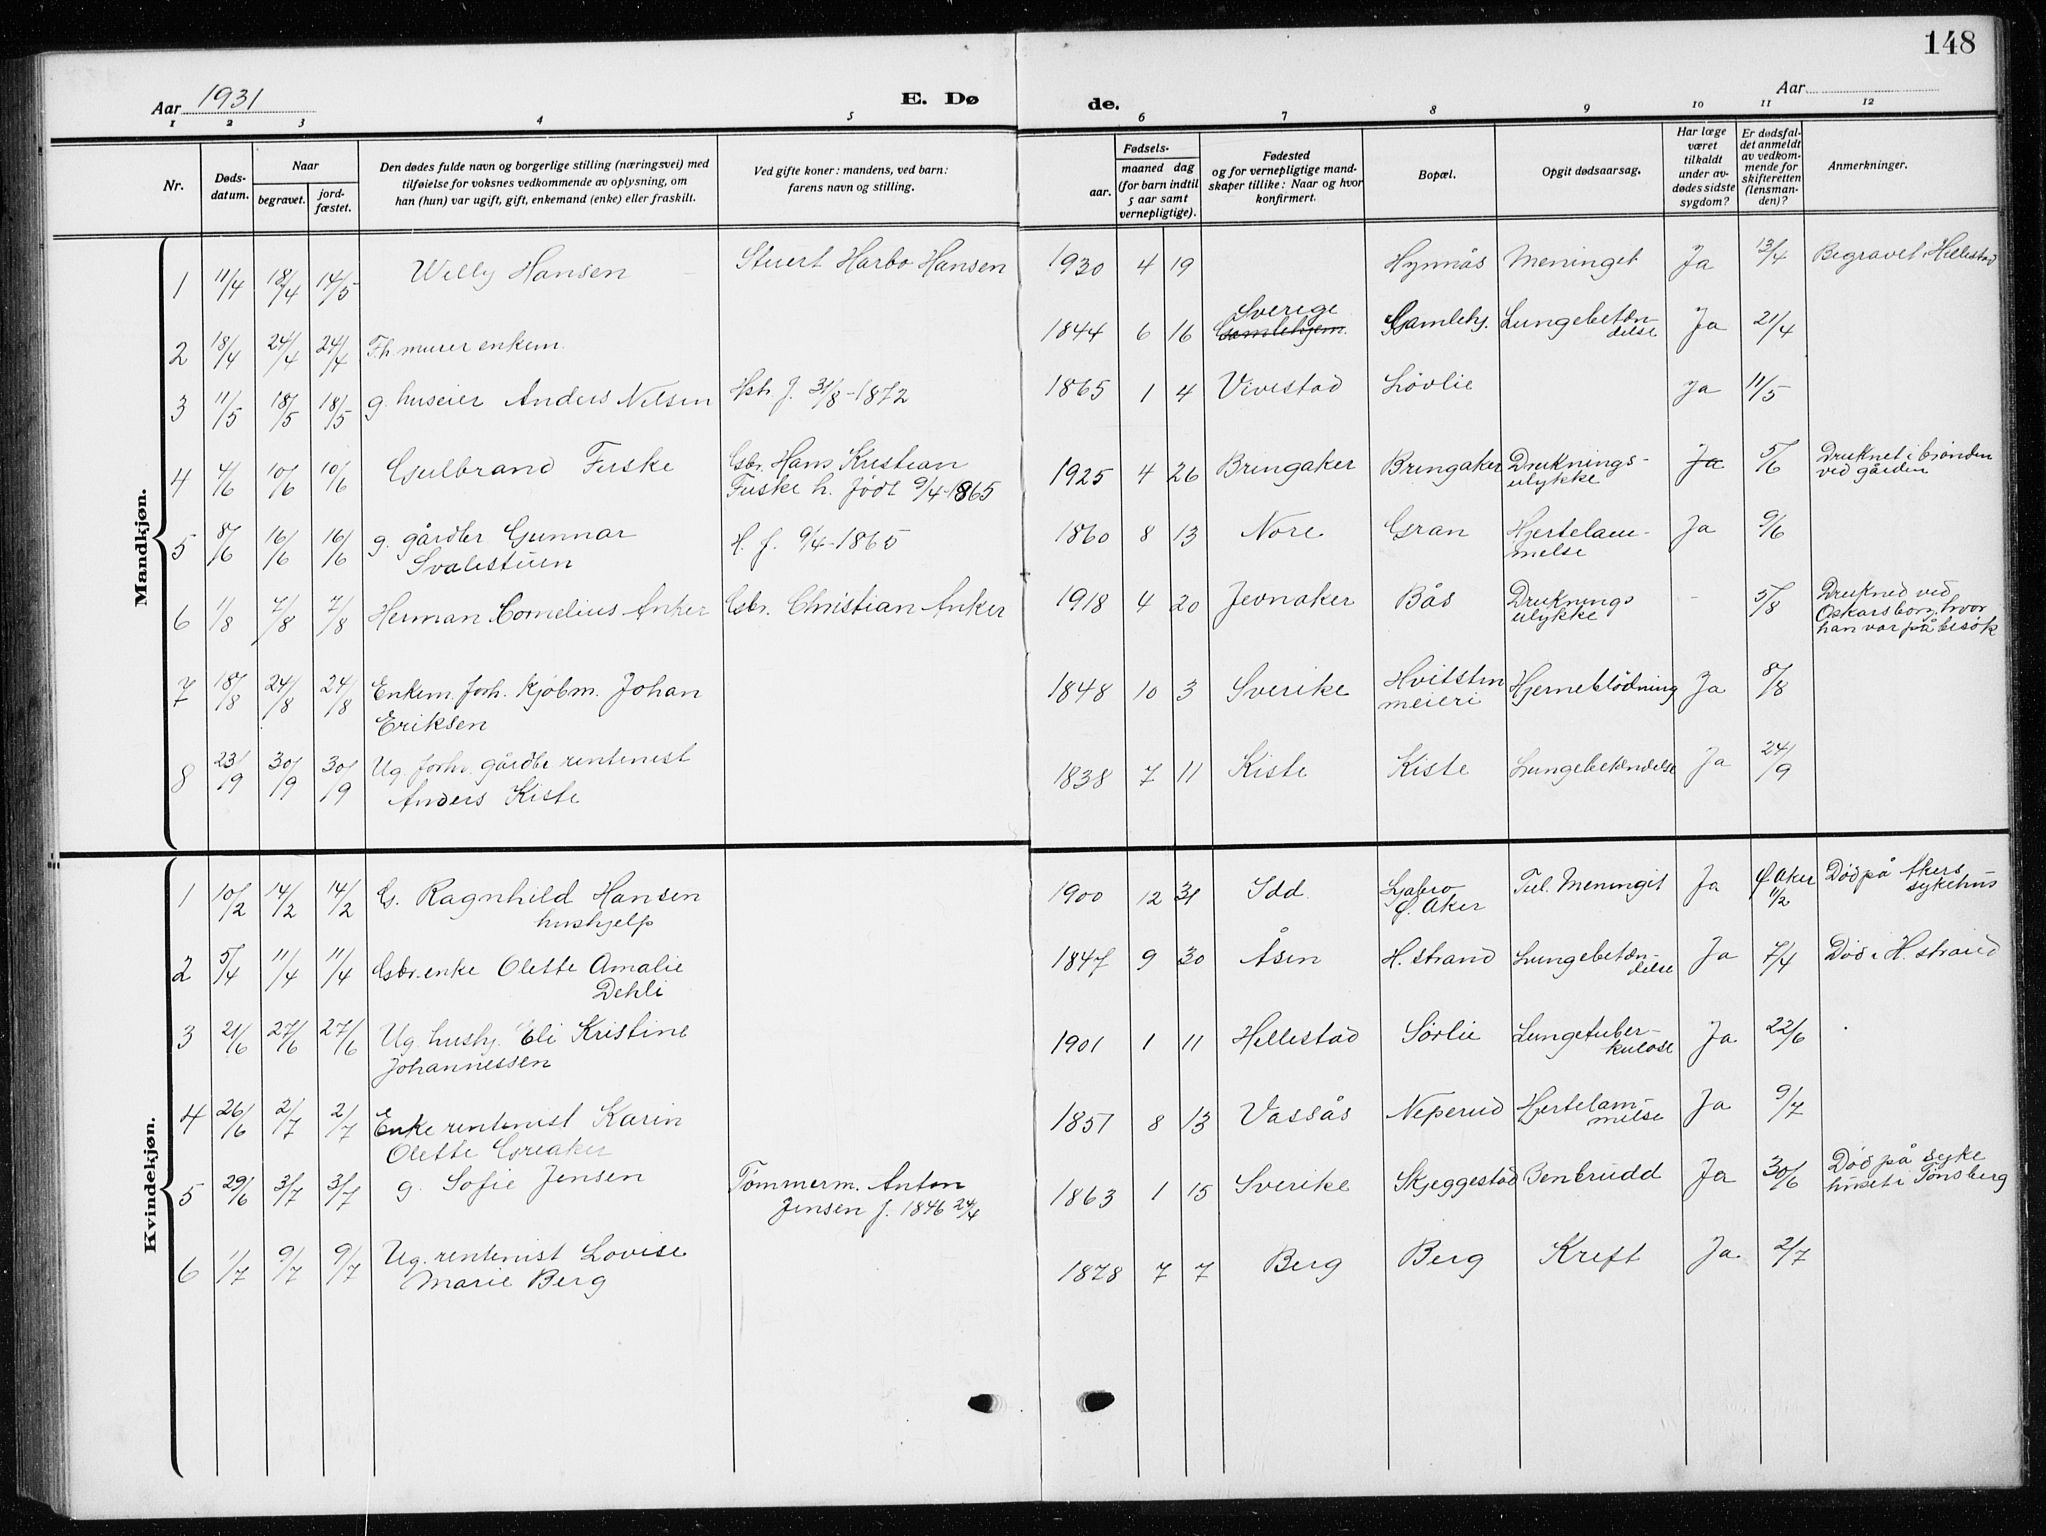 148
Aar 1931
E. Dø
de.
Aar
1 2 3 4 5 6 7 8 9 10 11 12
Nr.
Døds-
datum.
Naar
begravet.
jord-
fæstet.
Den dødes fulde navn og borgerlige stilling (næringsvei) med
tilføielse for voksnes vedkommende av oplysning, om
han (hun) var ugift, gift, enkemand (enke) eller fraskilt.
Ved gifte koner: mandens, ved barn:
farens navn og stilling.
Fødsels-
aar.
maaned dag
(for barn indtil
5 aar samt
vernepligtige).
Fødested
og for vernepligtige mand-
skaper tillike: Naar og hvor
konfirmert.
Bopæl.
Opgit dødsaarsag.
Har læge
været
tilkaldt
under av-
dødes sidste
sygdom?
Er dødsfal-
det anmeldt
av vedkom-
mende for
skifteretten
(lensman-
den)?
Anmerkninger.
Mandkjøn.
1 11/4 18/4 14/5 Willy Hansen Stuert Harbo Hansen 1930 4 19 Hynnås Meninget Ja 13/4 Begravet i Hillestad
2 18/4 24/4 24/4 Fh. murer enkem. 1844 6 16 Sverige
Gamlehjem Gamlehj. Lungebetæn-
delse Ja 21/4
3 11/5 18/5 18/5 g. huseier Anders Nilsen Hstr. f. 31/8-1872 1865 1 4 Vivestad Løvlie Ja 11/5
4 4/6 10/6 10/6 Gulbrand Fuske Gbr. Hans Kristian
Fuske h. født 9/4-1865 1925 4 26 Bringaker Bringaker Druknings-
ulykke Ja 5/6 Druknet i brønden
ved gården
5 8/6 16/6 16/6 g. gårdbr Gunnar
Svalestuen H. f. 9/4-1865 1860 8 13 Nore Gran Hjertelam-
melse Ja 9/6
6 1/8 7/8 7/8 Herman Cornelius Anker Gbr. Christian Anker 1918 4 20 Jevnaker Bås Druknings
ulykke - 5/8 Druknet ved
Oskarsborg, hvor
han var på besøk
7 18/8 24/8 24/8 Enkem. forh. Kjøbm. Johan
Eriksen 1848 10 3 Sverike Hvitstin
meieri Hjerneblödning Ja 8/8
8 23/9 30/9 30/9 Ug. forhv. gårdbr rentenist
Anders Kiste 1838 7 11 Kiste Kiste Lungebetændelse Ja 24/9
Kvindekjøn.
1 10/2 14/2 14/2 G. Ragnhild Hansen
hushjelp 1900 12 31 Idd Ljabro
Ø. Aker Tub. Meningit Ja Ø Aker
11/2 Død på Akers
sykehus
2 5/4 11/4 11/4 Gbr. enke Olette Amalie
Dehli 1847 9 30 Åsen H. strand Lungebetæn-
delse Ja 7/4 Død i H. strand
3 21/6 27/6 27/6 Ug. hushj. Eli Kristine
Johannessen 1901 1 11 Hillestad Sørlie Lungetuber-
kulose Ja 22/6
4 26/6 2/7 2/7 Enke rentenist Karin
Olette Greaker 1851 8 13 Vassås Neperud Hjertelam-
melse Ja 9/7
5 29/6 3/7 3/7 g. Sofie Jensen Tømmerm. Anton
Jensen f. 1846 24/4 1863 1 15 Sverike Skjeggestad Benbrudd Ja 30/6 Død på syke
huset i Tønsberg
6 1/7 9/7 9/7 Ug. rentenist Lovise
Marie Berg 1878 7 7 Berg Berg Kreft Ja 2/7